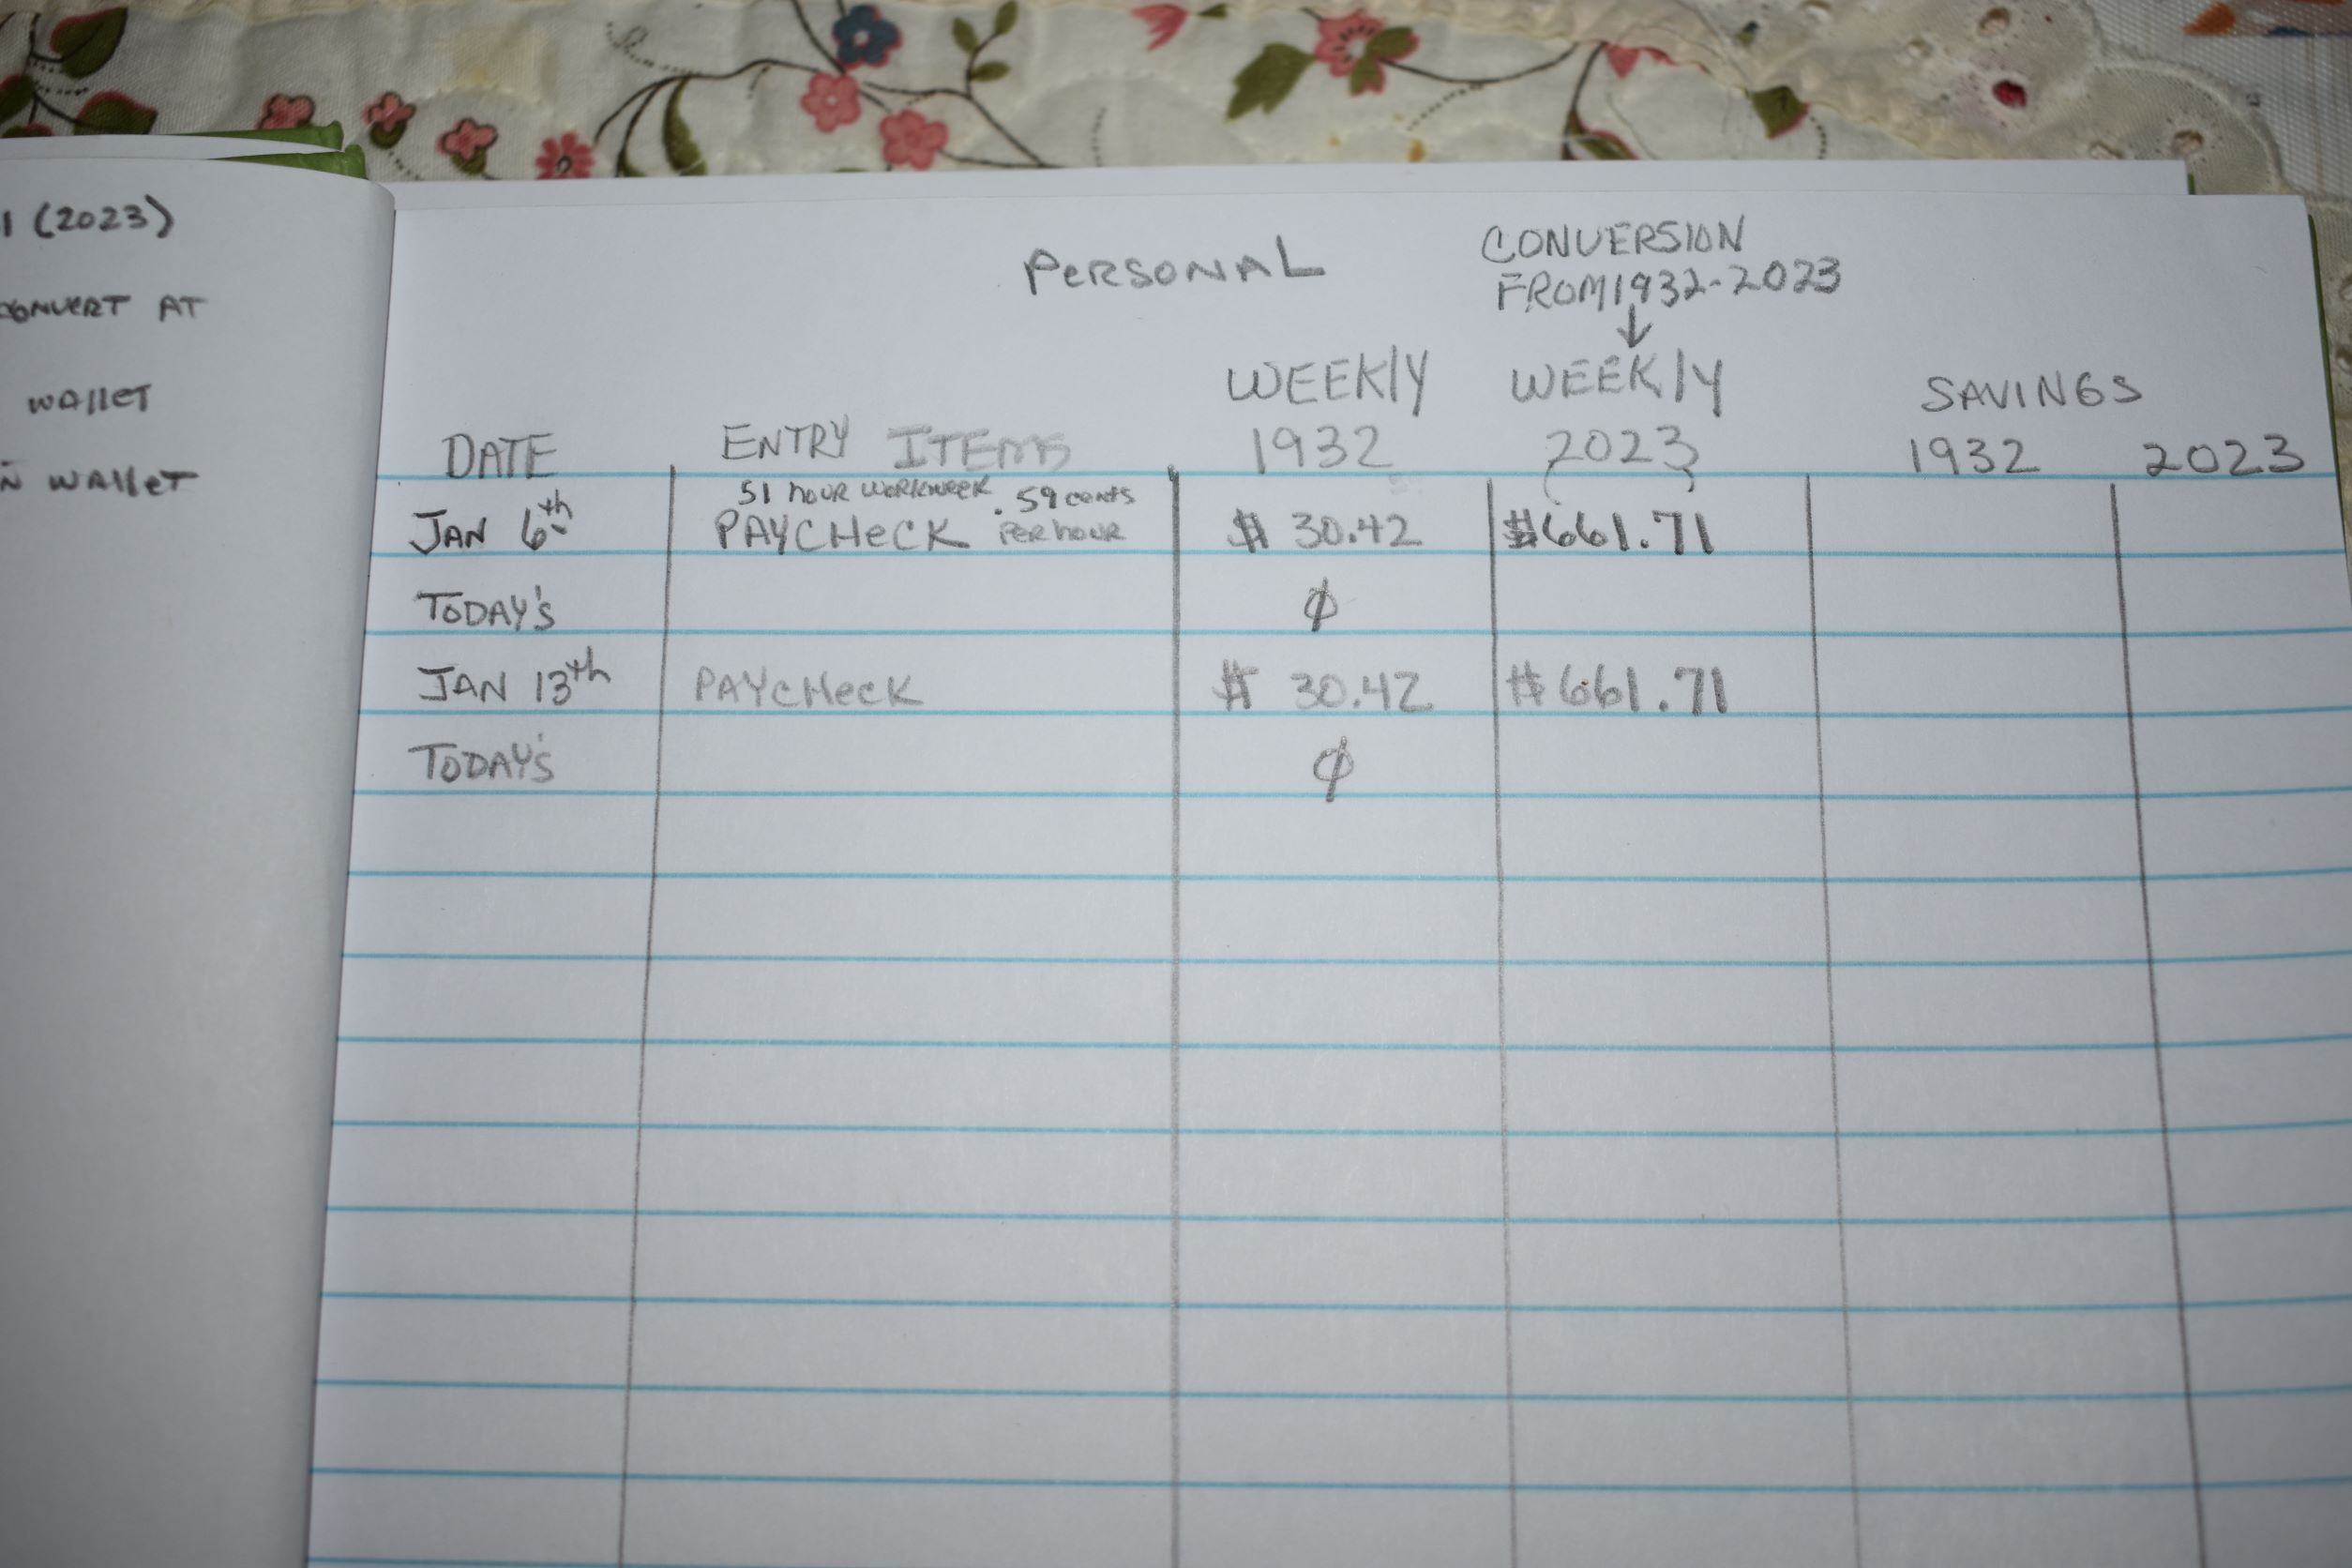 1 (2023)
CONVERT AT
WALLET
N WALLET
PERSONAL
CONVERSION
FROM 1932-2023
↓
WEEKLY WEEKLY SAVINGS
DATE ENTRY ITEMS 1932 2023 1932 2023
51 HOUR WORKWEEK . 59 cents
JAN 6th PAYCHECK PER HOUR $ 30.42 $661.71
TODAY'S ϕ
JAN 13th PAYCHECK $ 30.42 $661.71
TODAY'S ϕ